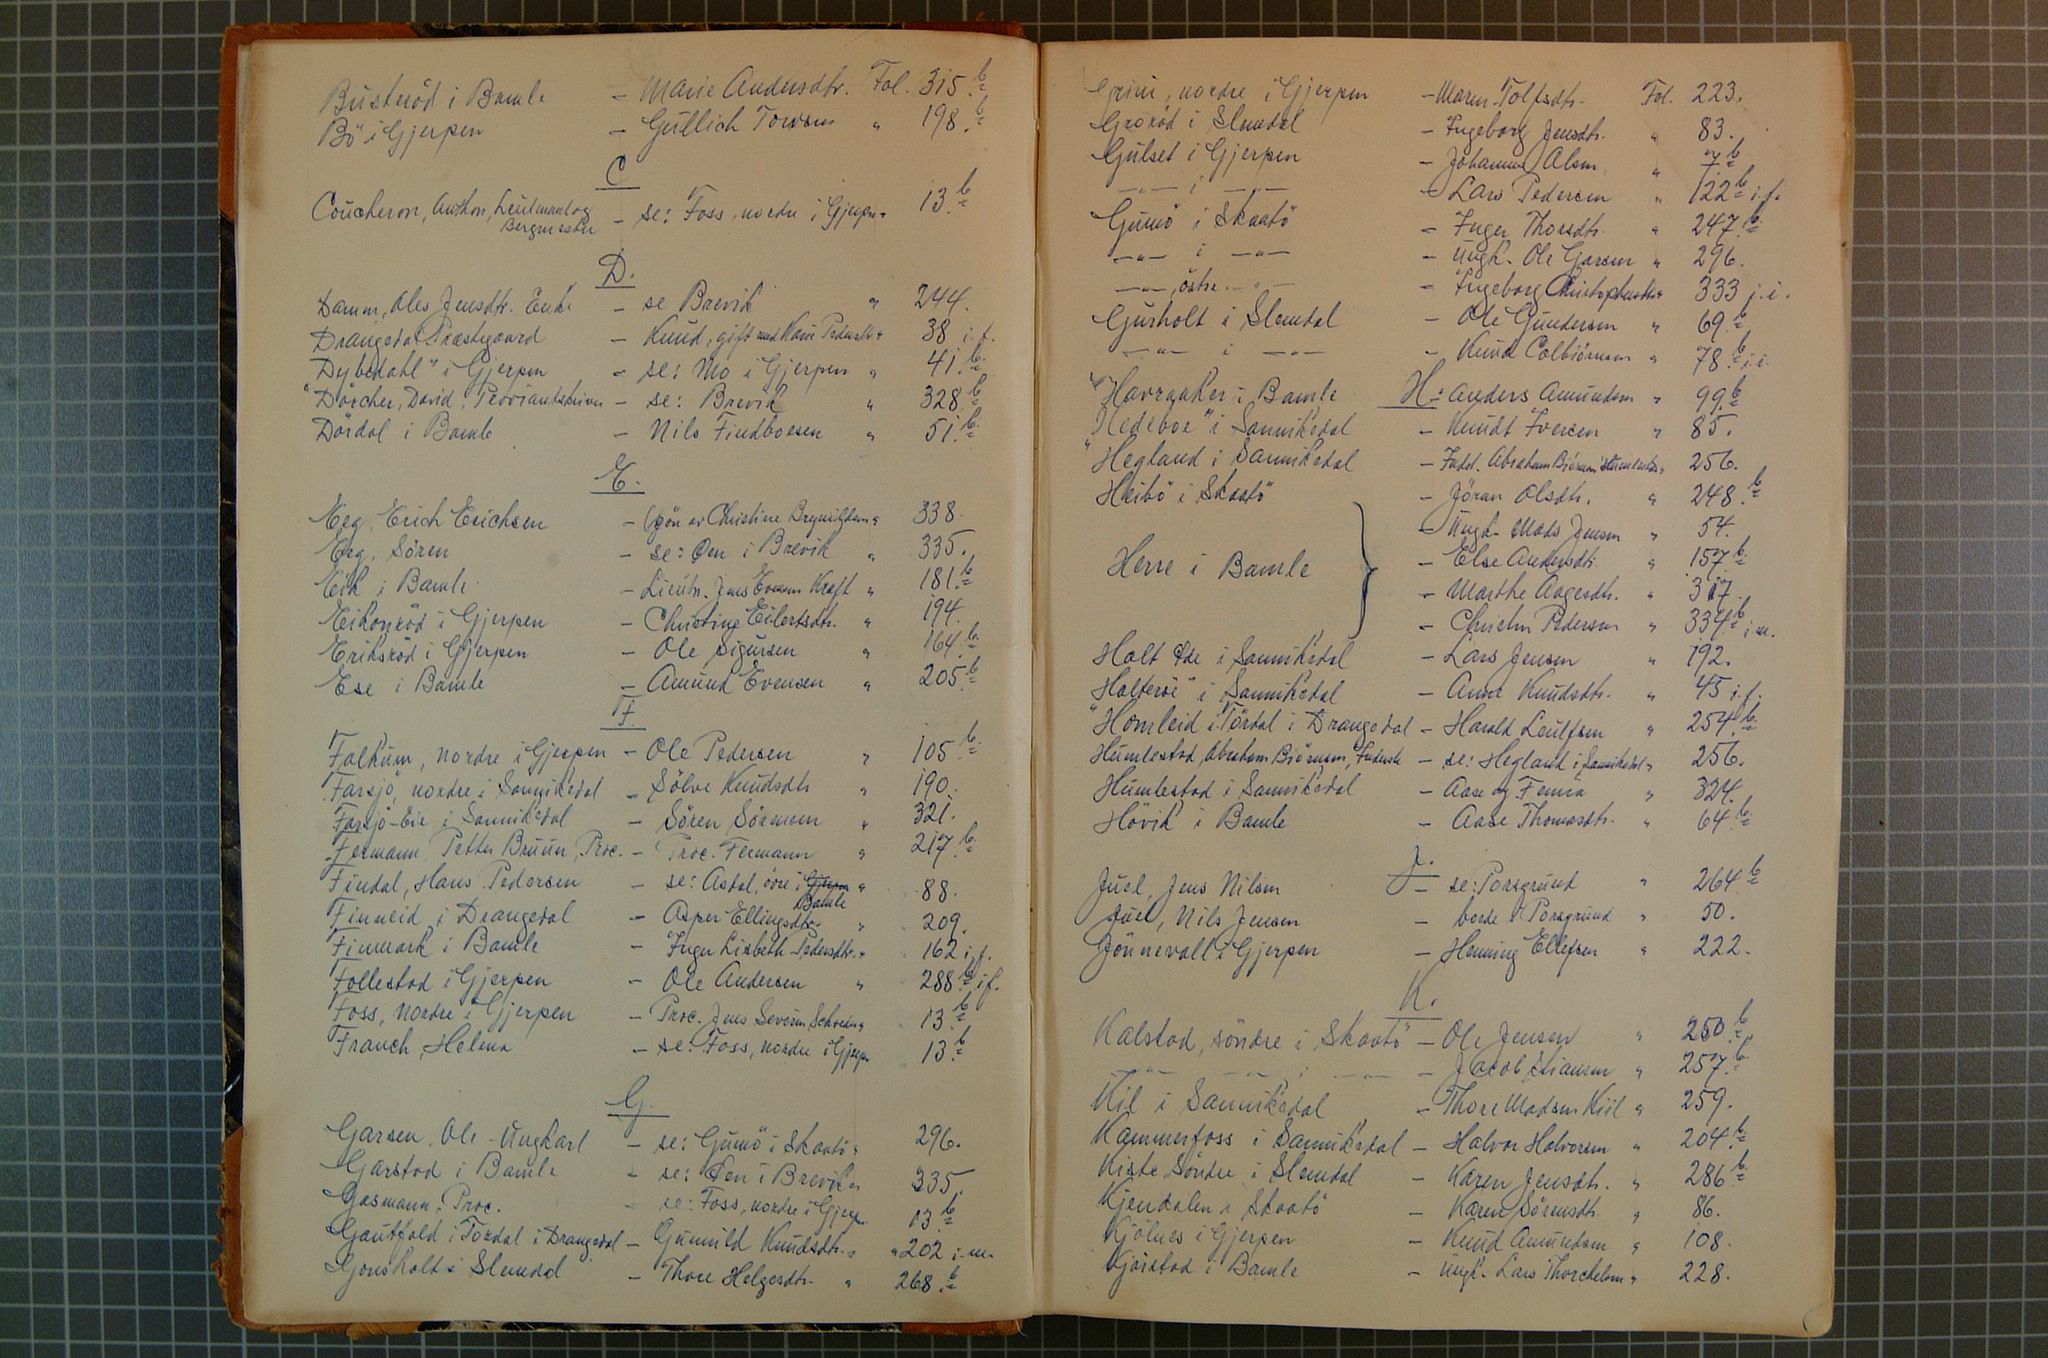 Busteröd i Bamle – Marie Andersdtr. Fol. 315 b
Bö i Gjerpen – Gullich Toresen " 198 b
C
Coucheron, Anthon, Leutnant og Bergmester – se: Foss, nordre i Gjerpen " 13 b
D.
Damm, Ales Jensdtr. Enke – se Brevik " 244.
Drangedal Præstgaard – Knud, gift med Kari Pedersdtr " 38 i.f.
"Dybedahl" i Gjerpen – se: Mo i Gjerpen " 41 b
"Dörcher, David, Proviantskriver – se: Brevik " 328 b
Dördal i Bamle – Nils Findboesen " 51 b
E.
Eeg, Erich Erichsen – (sön av Christine Brynildsen " 338.
Eeg, Sören – se: Öen i Brevik " 335.
Eik i Bamle – Lieutn. Jens Evensen Kraft " 181 b
Eikonröd i Gjerpen – Christine Eilertsdtr. " 194.
Eriksröd i Gjerpen – Ole Sigursen " 164 b
Ese i Bamle – Amund Evensen " 205 b
F.
Falkum, nordre i Gjerpen – Ole Pedersen " 105 b
Farsjö, nordre i Sannikedal – Sölve Knudsdtr " 190.
Farsjö-Eie i Sannikedal – Sören Sörensen " 321.
Fermann, Petter Bruun, Proc. – Proc. Fermann " 217 b
Findal, Hans Pedersen – se: Asdal, övre i Gjerpen Bamle " 88.
Finneid i Drangedal – Asper Ellingsdtr. " 209.
Finmark i Bamle – Inger Lisbeth Pedersdtr. " 162 i.f.
Follestad i Gjerpen – Ole Andersen " 288 b i f.
Foss, nordre i Gjerpen – Proc. Jens Severin Schreder " 13 b
Franch, Helena – se: Foss, nordre i Gjerpen 13 b
G.
Garsen, Ole – Ungkarl – se: Gumö i Skaatö " 296.
Garstad i Bamle – se: Öen i Brevik " 335.
Gasmann, Proc. – se: Foss, nordre i Gjerp. 13 b
Gautfald i Tördal i Drangedal – Gunnild Knudsdtr. " 202 i.m.
Gonsholt i Slemdal – Thore Helgesdtr. " 268 b
Grini, nordre i Gjerpen – Maren Tolfsdtr. Fol. 223.
Groröd i Slemdal – Ingeborg Jensdtr. " 83.
Gulset i Gjerpen – Johannes Olsen " 7 b
—"— i —"— – Lars Pedersen " 122 b i.f.
Gumö i Skaatö – Inger Thorsdtr. " 247 b
—"— i —"— – Ungk. Ole Garsen " 296.
—"—, östre —"— – Ingeborg Christophersdtr " 333 j.i.
Gurholt i Slemdal – Ole Gundersen " 69 b
—"— i —"— – Knud Colbiörnsen " 78 b i.i.
H.
"Havraaker i Bamle – Anders Amundsen " 99 b
"Hedeboe" i Sannikedal – Knudt Iversen " 85.
"Hegland i Sannikedal – Fodel. Abraham Biörnsen Humlestad " 256.
Heibö i Skaatö – Jöran Olsdtr. " 248 b
Herre i Bamle } – Ungk. Mads Jensen " 54.
– Else Andersdtr. " 157 b
– Marthe Aagesdtr. " 317.
– Christen Pedersen " 334 b i m.
Holt Öde i Sannikedal – Lars Jensen " 192.
Holteröe" i Sannikedal – Anne Knudsdtr. " 45 i.f.
"Homleid i Tördal i Drangedal – Harald Leulfsen " 254 b
Humlestad, Abraham Biörnsen, – se: Hegland i Sannikedal " 256.
Humlestad i Sannikedal – Aase og Femia " 324.
Hövik i Bamle – Aase Thomasdtr. " 64 b
J.
Juel, Jens Nilsen – se: Porsgrund " 264 b
Juel, Nils Jensen – borde i Porsgrund " 50.
Jönnevall i Gjerpen – Henning Ellefsen " 222.
K.
Kalstad, söndre i Skaatö – Ole Jensen " 250 b
—"— —"— i —"— – Jacob Stiansen " 257 b
Kil i Sannikedal – Thore Madsen Kiil " 259.
Kammerfoss i Sannikedal – Halvor Halvorsen " 204 b
Kiste Söndre i Slemdal – Karen Jensdtr. " 286 b
Kjendalen i Skaatö – Karen Sörensdtr. " 86.
Kjölnes i Gjerpen – Knud Amundsen " 108.
Kjörstad i Bamle – Ungk. Lars Thorchelsen " 228.